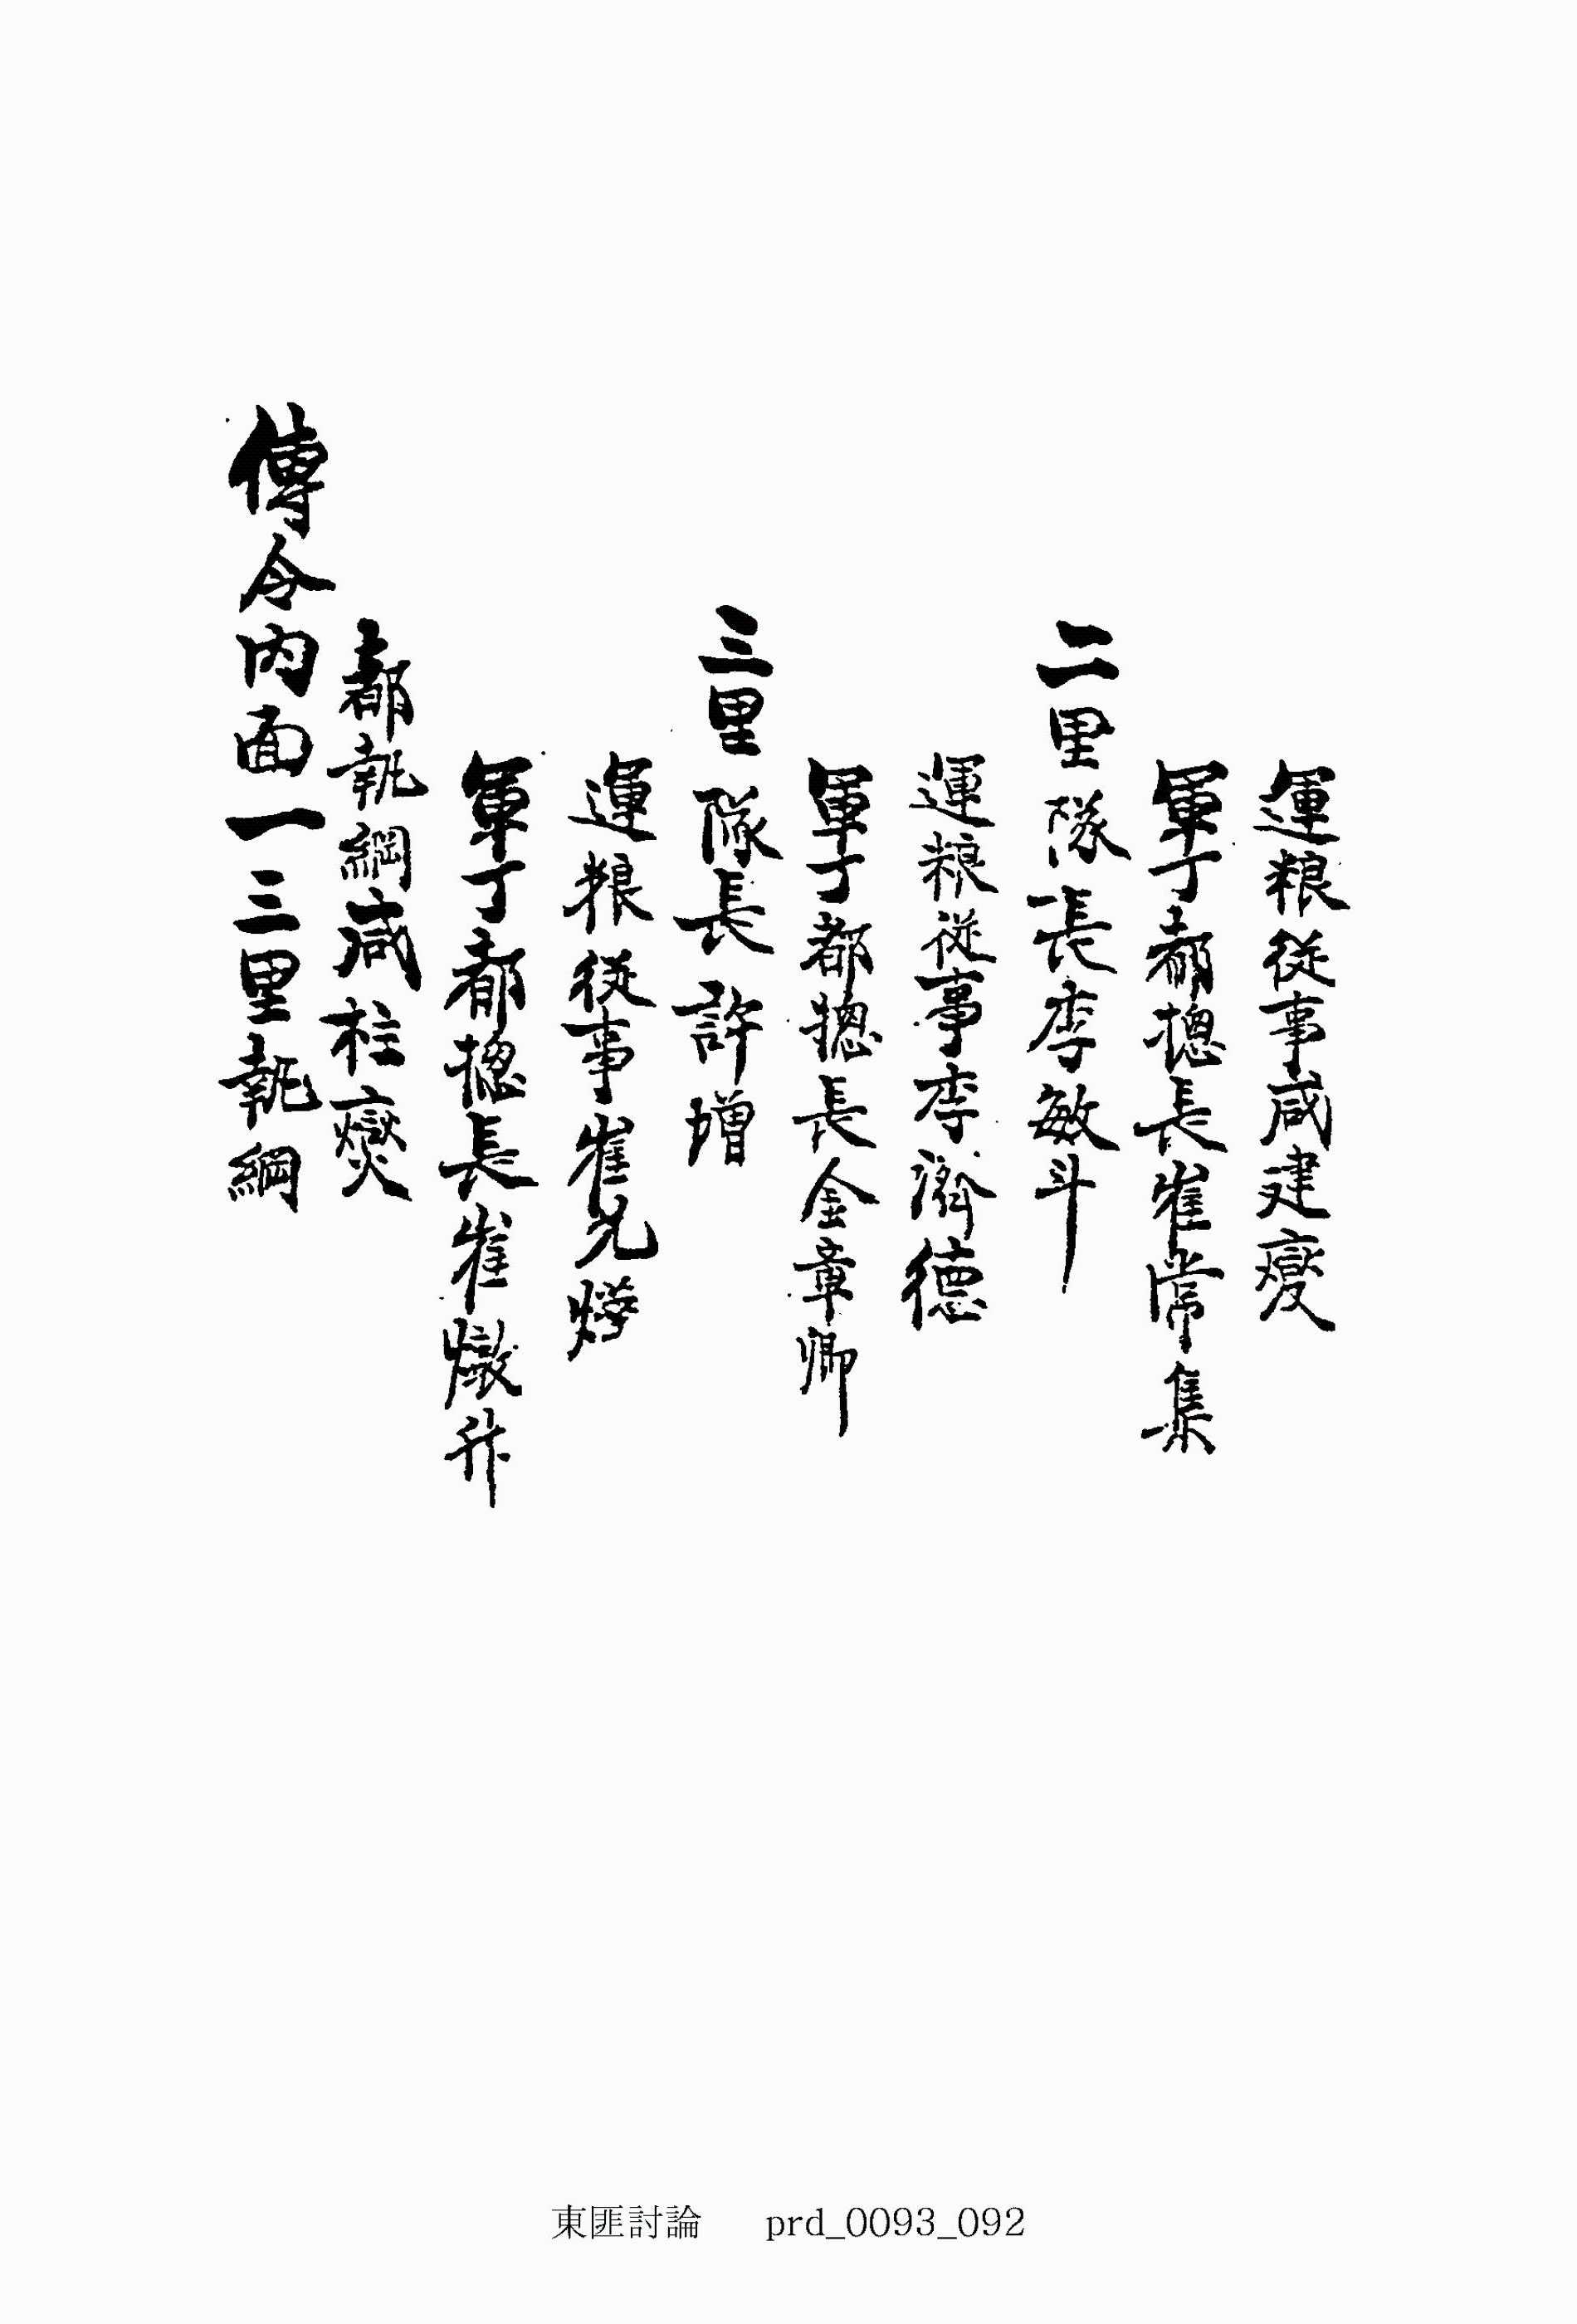 運粮從事咸建燮
軍丁都摠長崔常集
二里隊長李敏斗
運粮從事李濟德
軍丁都摠長金章卿
三里隊長許增
運粮從事崔允燁
軍丁都摠長崔燉升
都執綱咸柱燮
傳令內面一三里執綱
東匪討論 prd_0093_092